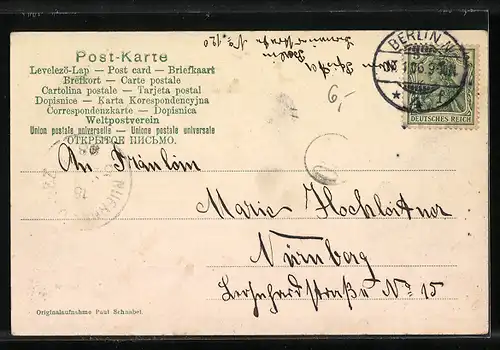 Post-Karte
Levelező-Lap — Post card — Briefkaart
Brefkort — Carte postale
Cartolina postale — Tarjeta postal
Dopisnice — Karta Korespondencyjna
Correspondenzkarte — Dopisnica
Weltpostverein
Union postale universelle — Unione postale universale
ОТКРЫТОЕ ПИСЬМО.
BERLIN N.
DEUTSCHES REICH
9,-
An Fräulein
Marie Hochleitner
Nürnberg
straße No 15
Originalaufnahme Paul Schnabel.